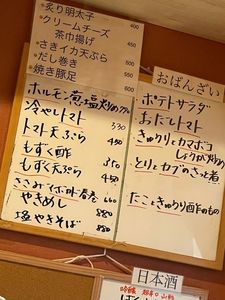 ・炙り明太子 400
・クリームチーズ
茶巾揚げ 400
・さきイカ天ぷら 450
・だし巻き 500
・焼き豚足 550
ホルモン葱塩炒め
冷やしトマト 330
トマト天ぷら 450
もずく酢 350
もずく天ぷら 450
ささみ 春巻 660
やきめし 880
塩やきそば 880
おばんざい
ポテトサラダ
おだしトマト
きゅうりとカマボコ
しょうが炒め
とりとカブのさっと煮
たこときゅうり酢のもの
日本酒
吟醸